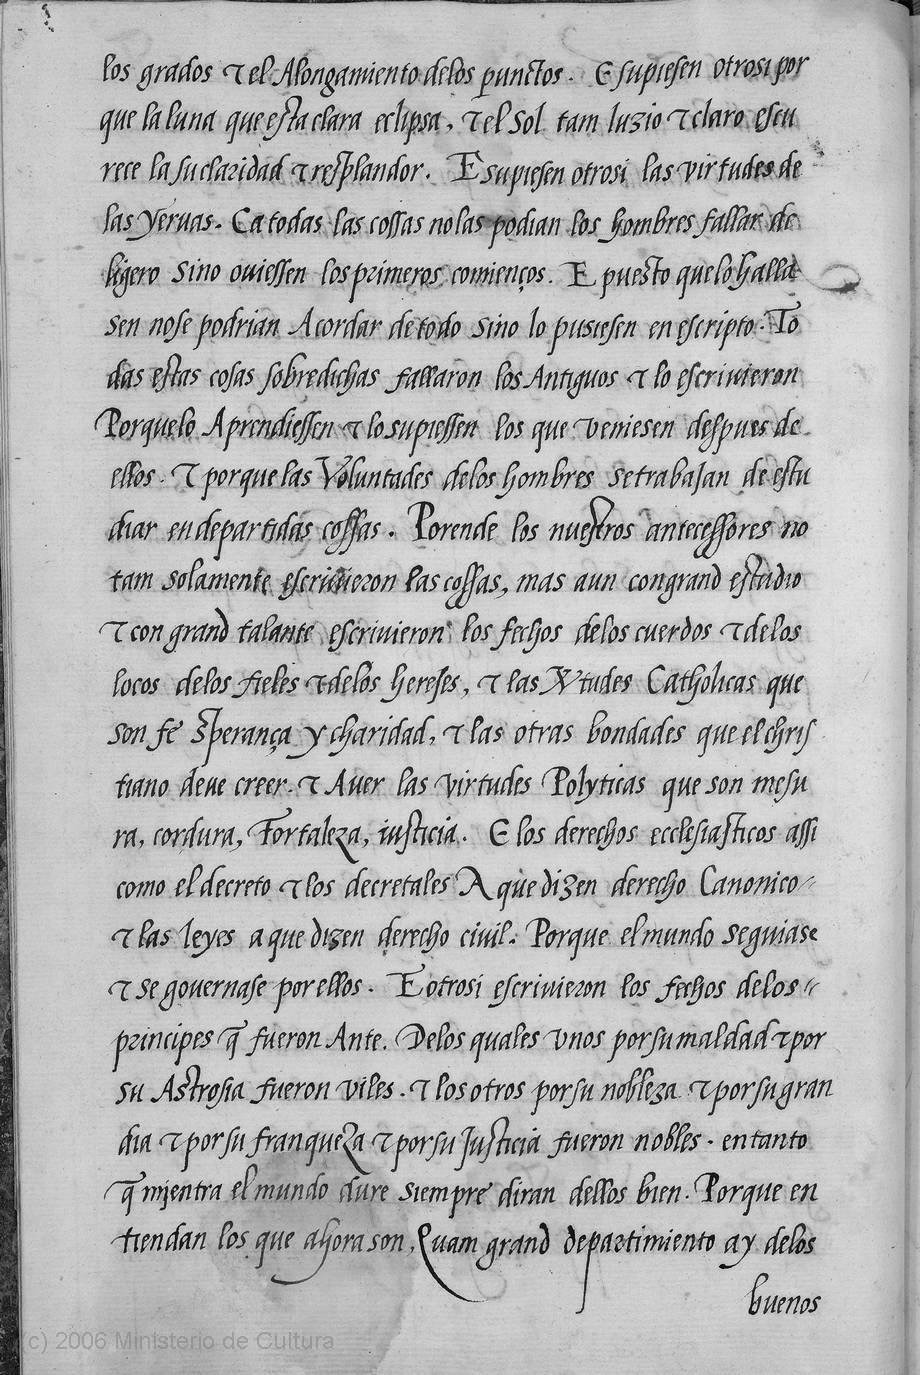 los grados ⁊ el Alongamiento delos punctos. E supiesen otrosi por
que la luna que esta clara eclipsa, ⁊ el Sol tam luzio ⁊ claro escu
rece la su claridad ⁊ resplandor. E supiesen otrosi las virtudes de
las yeruas. Ca todas las cossas no las podian los hombres fallar de
ligero sino ouiessen los primeros comienços. E puesto que lo halla
sen nose podrian Acordar de todo sino lo pusiesen en escripto. To
das estas cosas sobredichas fallaron los Antiguos ⁊ lo escriuieron
Porquelo Aprendiessen ⁊ lo supiessen los que veniesen despues de
ellos. ⁊ porque las Voluntades delos hombres se trabajan de estu
diar en departidas cossas. Porende los nuestros antecessores no
tam solamente escriuieron las cossas, mas aun con grand estudio
⁊ con grand talante escriuieron los fechos delos cuerdos ⁊ delos
locos delos fieles ⁊ delos hereses, ⁊ las Vtudes Catholicas que
son fe sperança y charidad, ⁊ las otras bondades que el chris
tiano deve creer. ⁊ Aver las virtudes Polyticas que son mesu
ra, cordura, Fortaleza, iusticia. E los derechos ecclesiasticos assi
como el decreto ⁊ los decretales A que dizen derecho Canonico
⁊ las leyes a que dizen derecho civil. Porque el mundo seguiase
⁊ se governase por ellos. E otrosi escriuieron los fechos delos
principes q̄ fueron Ante. Delos quales vnos por su maldad ⁊ por
su Astrosia fueron viles. ⁊ los otros por su nobleza ⁊ por su gran
dia ⁊ por su franqueza ⁊ por su Justicia fueron nobles. en tanto
q̄ mientra el mundo dure siempre diran dellos bien. Porque en
tiendan los que ahora son, Quam grand departimiento ay delos
buenos
(c) 2006 Ministerio de Cultura